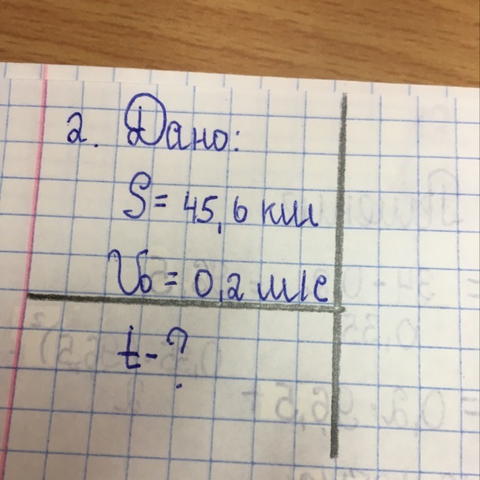 2. Дано:
S = 45,6 км
V₀ = 0,2 м/с
t - ?